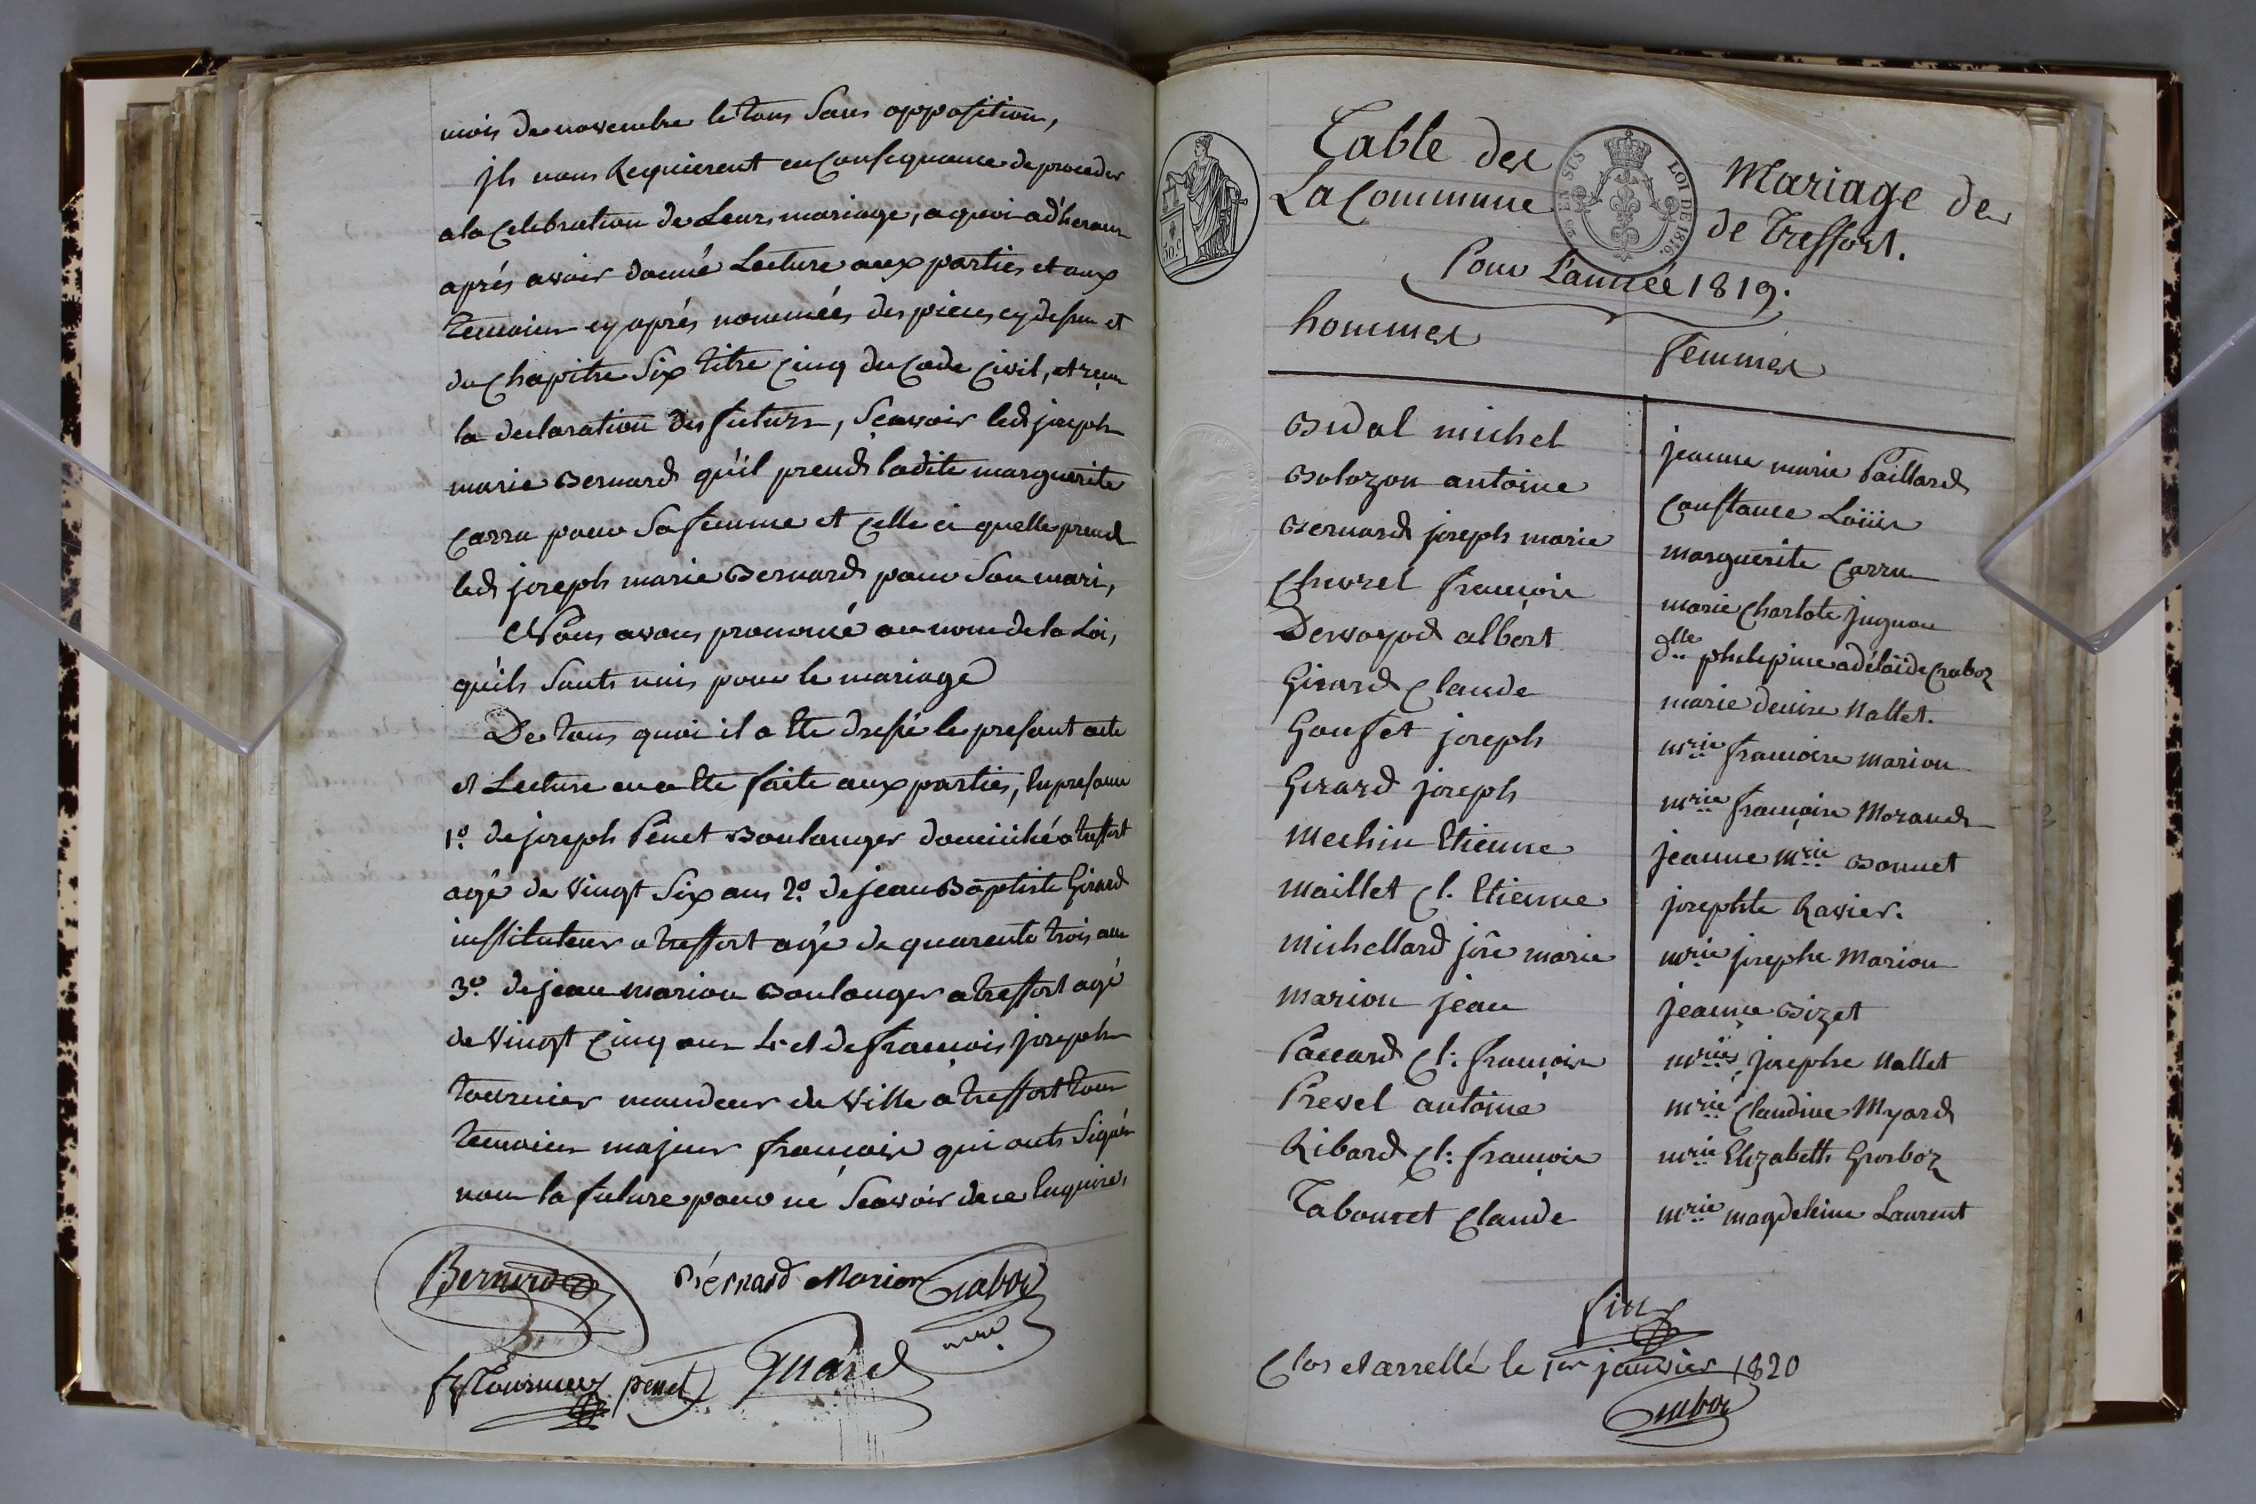 mois de novembre le tous sans opposition,
jls nous Requierent en Consequance de proceder
a la Celebration de Leur, mariage, a quoi adherant
aprés avoir donné Lecture aux parties et aux
temoins cy aprés nommées des pieces cy dessus et
du Chapitre Six titre Cinq du Code Civil, et reçu
la declaration des futurs, Scavoir led joseph
marie Bernard qu'il prend ladite marguerite
Carru pour Sa femme et Celle ci quelle prend
led joseph marie Bernard pour Son mari,
Nous avons prononcé au nom de la Loi,
qu'ils Sonts unis pour le mariage
De tous quoi il a Ete dressé le present acte
et Lecture en a Ete faite aux parties, En presance
1º. de joseph Penet Boulanger domicilié a treffort
agé de Vingt Six ans 2º. de jean Baptiste Girard
instituteur a treffort agé de quarente trois ans
3º. de jean marion Boulanger a treffort agé
de Vingt Cinq ans 4º et de francois joseph
tournier mandeur de Ville a treffort tous
temoins majeurs francais qui onts Signés
non la future pour ne Scavoir de ce Enquise,
Bernard Bernard Marion Craboz
mre
fs Tournier penet Girard
Table des Mariage de
La Commune de Treffort.
Pour L'année 1819.
50 c.
EN SUS LOI DE 1816.
hommes femmes
Bidal michel jeanne marie Paillard
Bolozon antoine Constance Loüis
Bernard joseph marie marguerite Carru
Chevrel françois marie Charlote jugnon
Dervoyod albert dlle philipine adélaïde Craboz
Girard Claude marie denise Nallet.
Gouset joseph mrie francoise Marion
Girard joseph mrie françoise Morand
Mechin Etienne jeanne mrie Bonnet
Maillet Cl. Etienne josephte Ravier.
Michellard jôe marie mrie josephe Marion
Marion jean jeanne Bizet
Paccard Cl: françois mrie josephe Nallet
Prevel antoine mrie Claudine Myard
Ribard Cl: françois mrie Elizabeth Grosboz
Tabouret Claude mrie magdeleine Laurent
fin
Clos et arrellé le 1er janvier 1820
Craboz